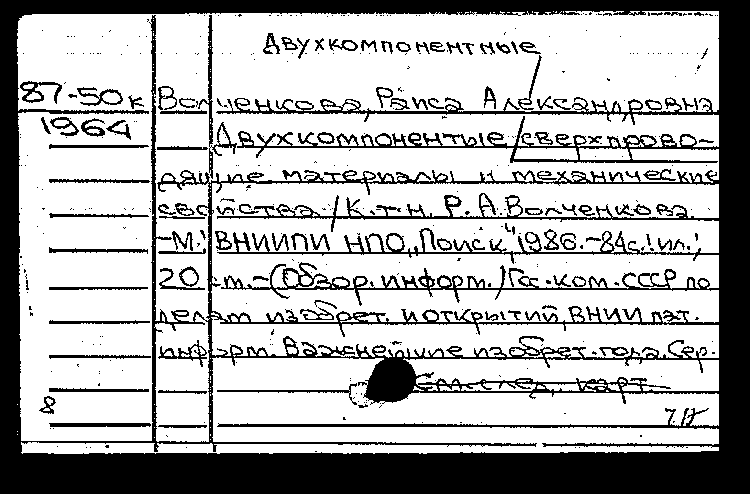 Двухкомпонентные
87-50к Волченкова, Раиса Александровна
1964 Двухкомпонентные сверхпрово-
дящие материалы и механические
свойства / К.т.н. Р.А.Волченкова.
-М.: ВНИИПИ НПО „Поиск", 1986.-84с.: ил.;
20 см.-(Обзор. информ. / Гос. ком. СССР по
делам изобрет. и открытий, ВНИИ пат.
информ. Важнейшие изобрет. года. Сер.
См. след. карт.
8